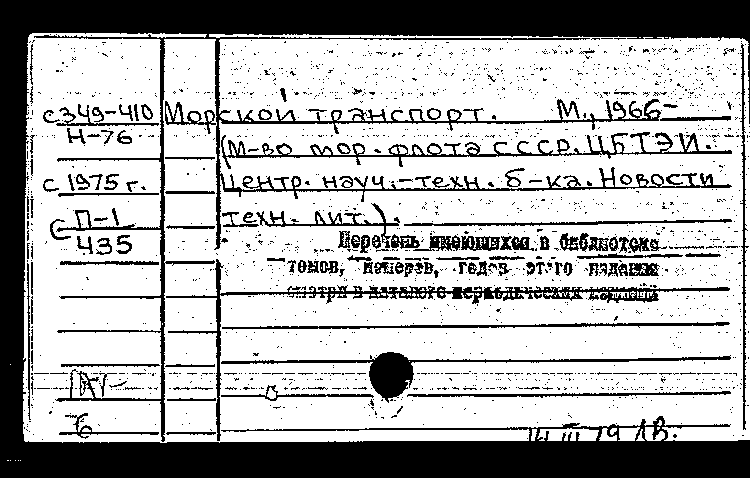 с 349-410 Морской транспорт. М., 1966-
Н-76 (М-во мор. флота СССР. ЦБТЭИ.
с 1975 г. Центр. науч.-техн. б-ка. Новости
С П-1 техн. лит.).
435
Перечень имеющихся в библиотеке
томов, номеров, годов этого издания
смотри в каталоге периодических изданий
6
14 III 79 ЛВ.